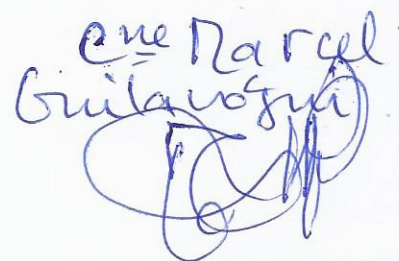 Cne Marcel
Guilavogui